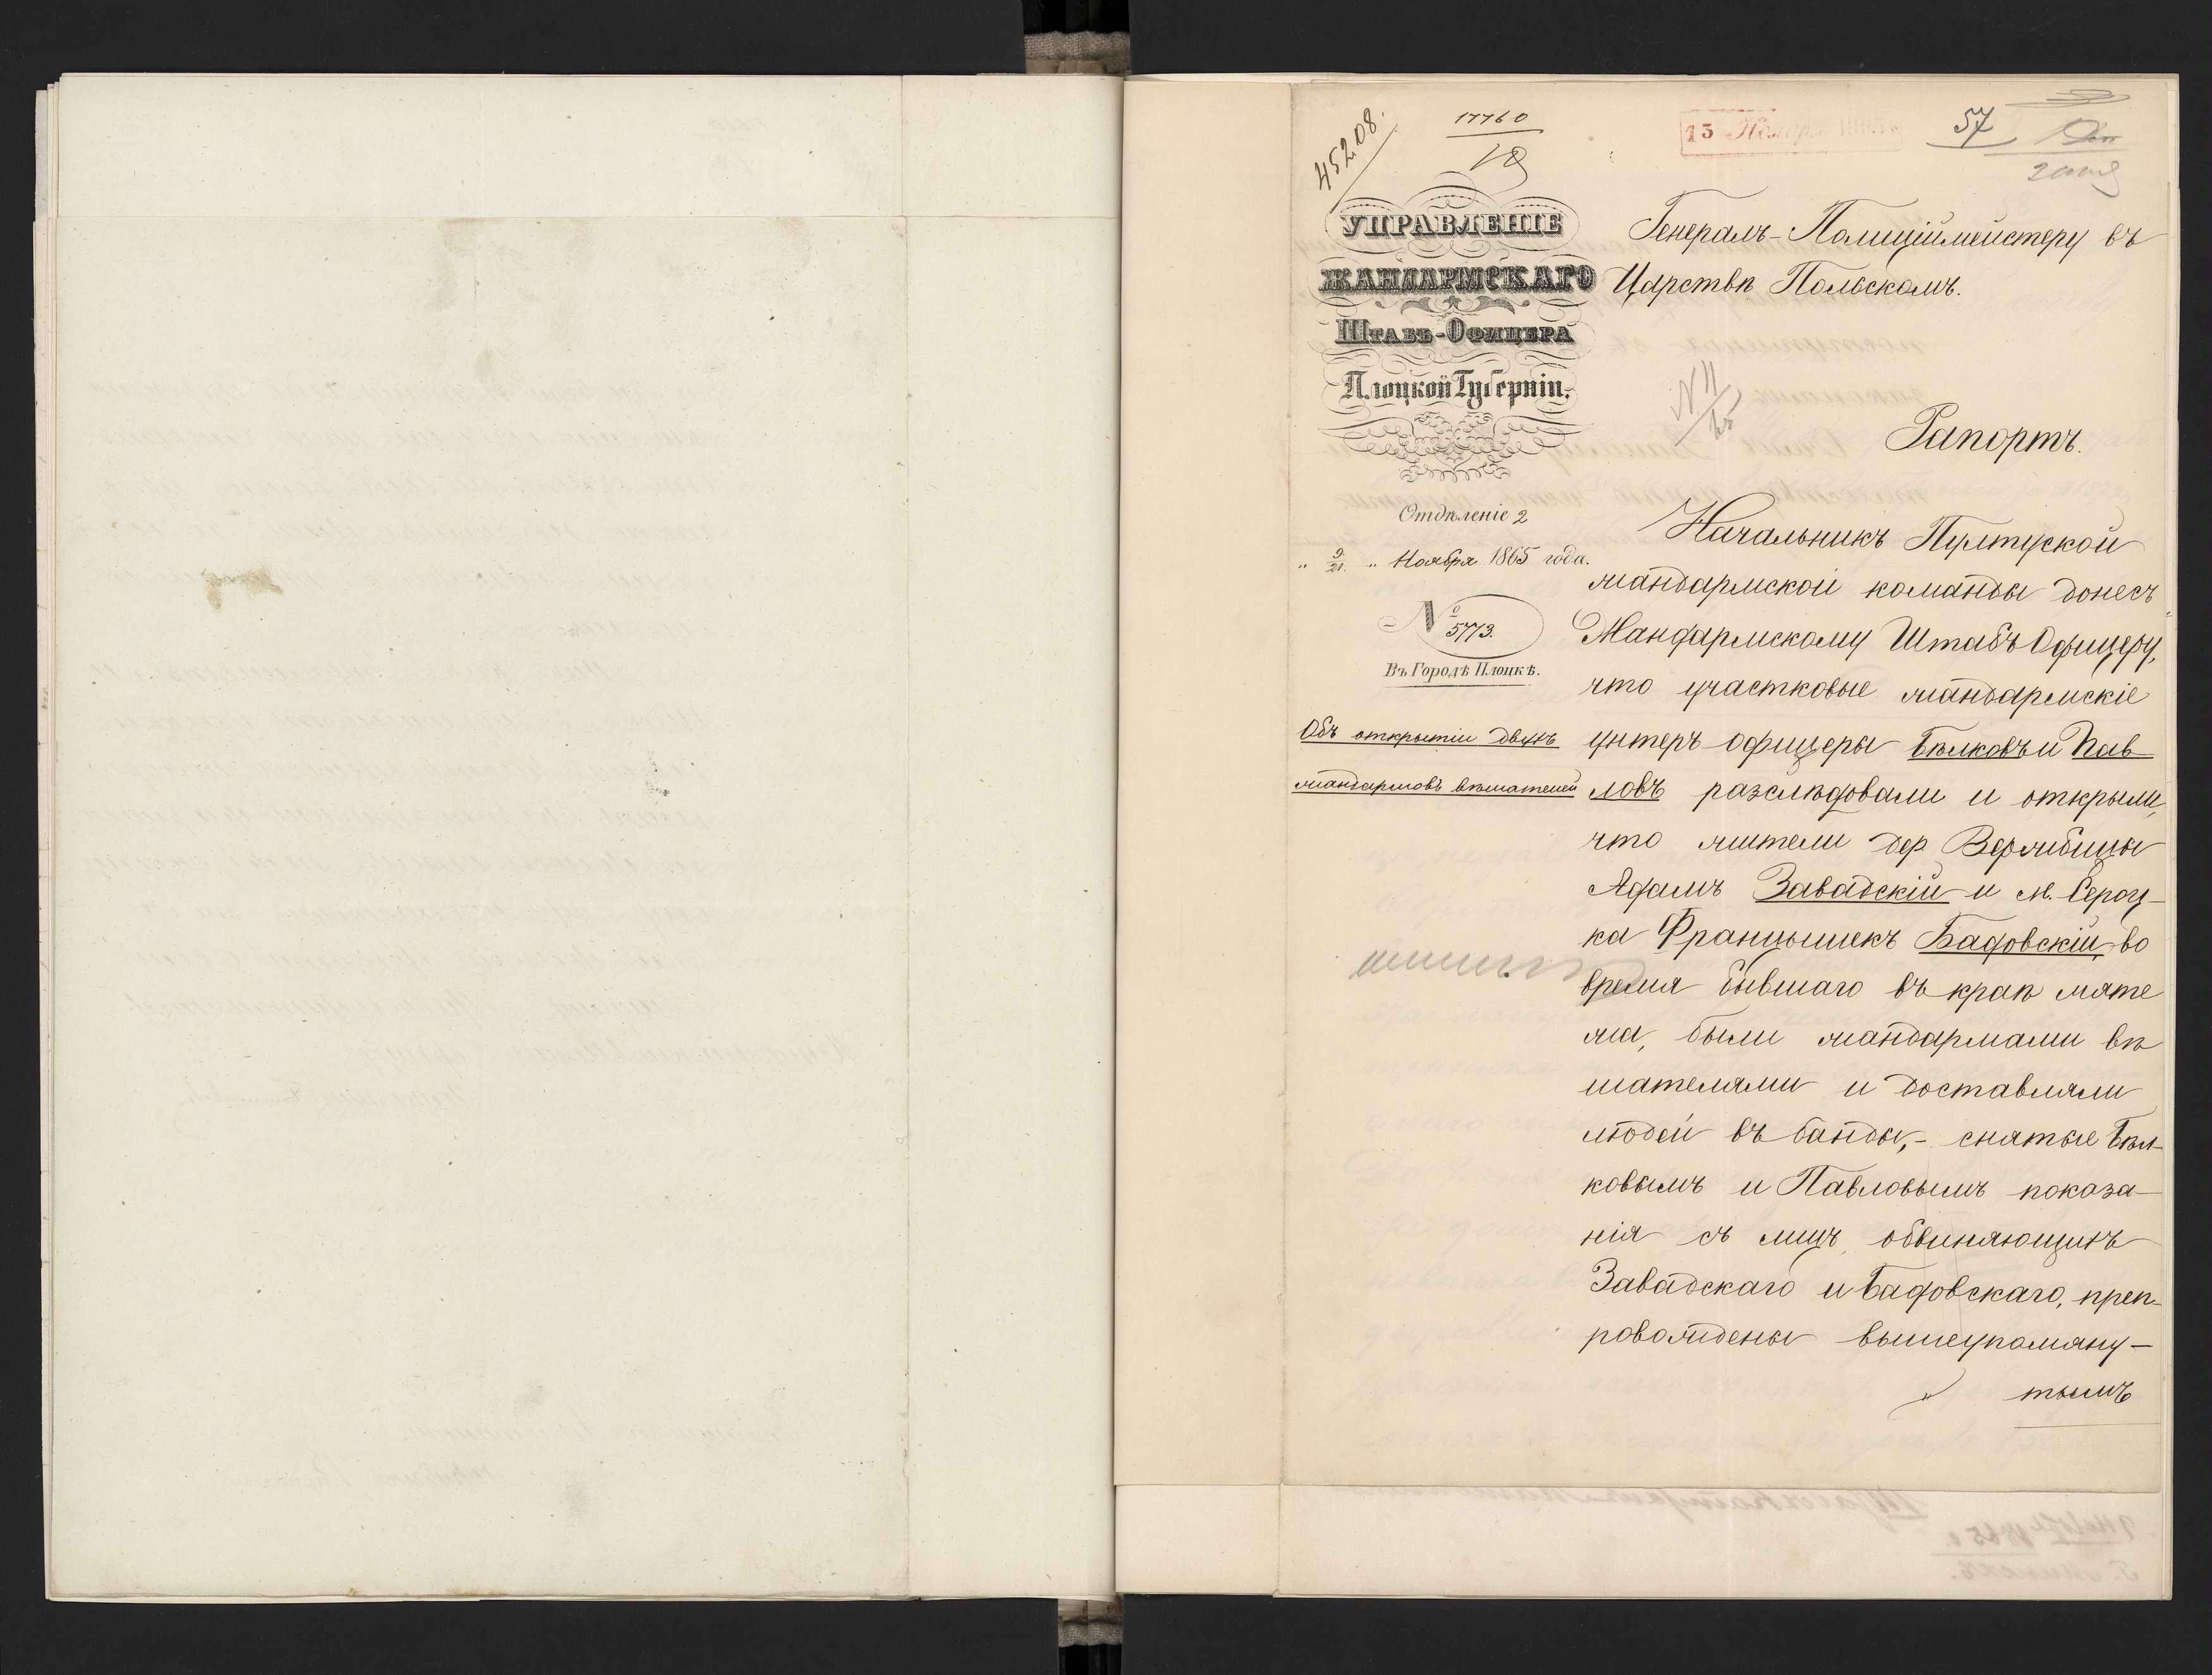 45208.
17760
13 Ноября 1865
57
УПРАВЛЕНІЕ
ЖАНДАРМСКАГО
ШТАБЪ-ОФИЦЕРА
Плоцкой Губерніи.
Отдѣленіе 2
" 9/21. " Ноября 1865 года.
№ 5773.
Въ Городѣ Плоцкѣ.
Объ открытіи двухъ
жандармовъ вѣшателей
Генералъ-Полиціймейстеру въ
Царствѣ Польскомъ.
N 11/25
Рапортъ.
Начальникъ Пултуской
жандармской команды донесъ
Жандармскому Штабъ Офицеру,
что участковые жандармскіе
унтеръ-офицеры Бѣлковъ и Пав
ловъ разслѣдовали и открыли,
что жители дер Вержбицы
Адамъ Завадскій и м. Сероц-
ка Францышекъ Бадовскій, во
время бывшаго въ краѣ мяте
жа, были жандармами вѣ
шателями и доставляли
людей въ банды,- снятые Бѣл-
ковымъ и Павловымъ показа-
нія съ лицъ обвиняющихъ
Завадскаго и Бадовскаго, преп-
ровождены вышеупомяну-
тымъ